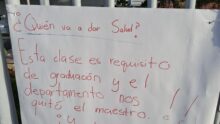 ¿Quién va a dar Salud?
Esta clase es requisito
de graduación y el
departamento nos
quitó el maestro.
¿y